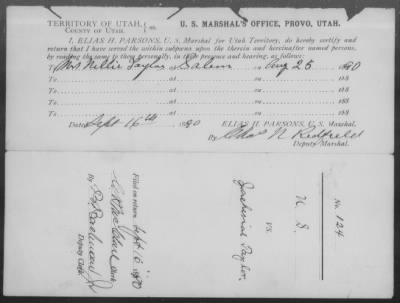 TERRITORY OF UTAH, } ss.
COUNTY OF UTAH.
U. S. MARSHAL'S OFFICE, PROVO, UTAH.
I, ELIAS H. PARSONS, U. S. Marshal for Utah Territory, do hereby certify and
return that I have served the within subpœna upon the therein and hereinafter named persons,
by reading the same to them personally, in their presence and hearing, as follows:
To Mrs Nellie Taylor at Salem on Aug 25 1890
To at on 188
To at on 188
To at on 188
To at on 188
Dated Sept 16th 1890
ELIAS H. PARSONS, U. S. Marshal.
By Chas N Redfield
Deputy Marshal.
No. 124
U. S.
VS.
Taylor.
Filed on return Sept 16 1890
Clerk
By
Deputy Clerk